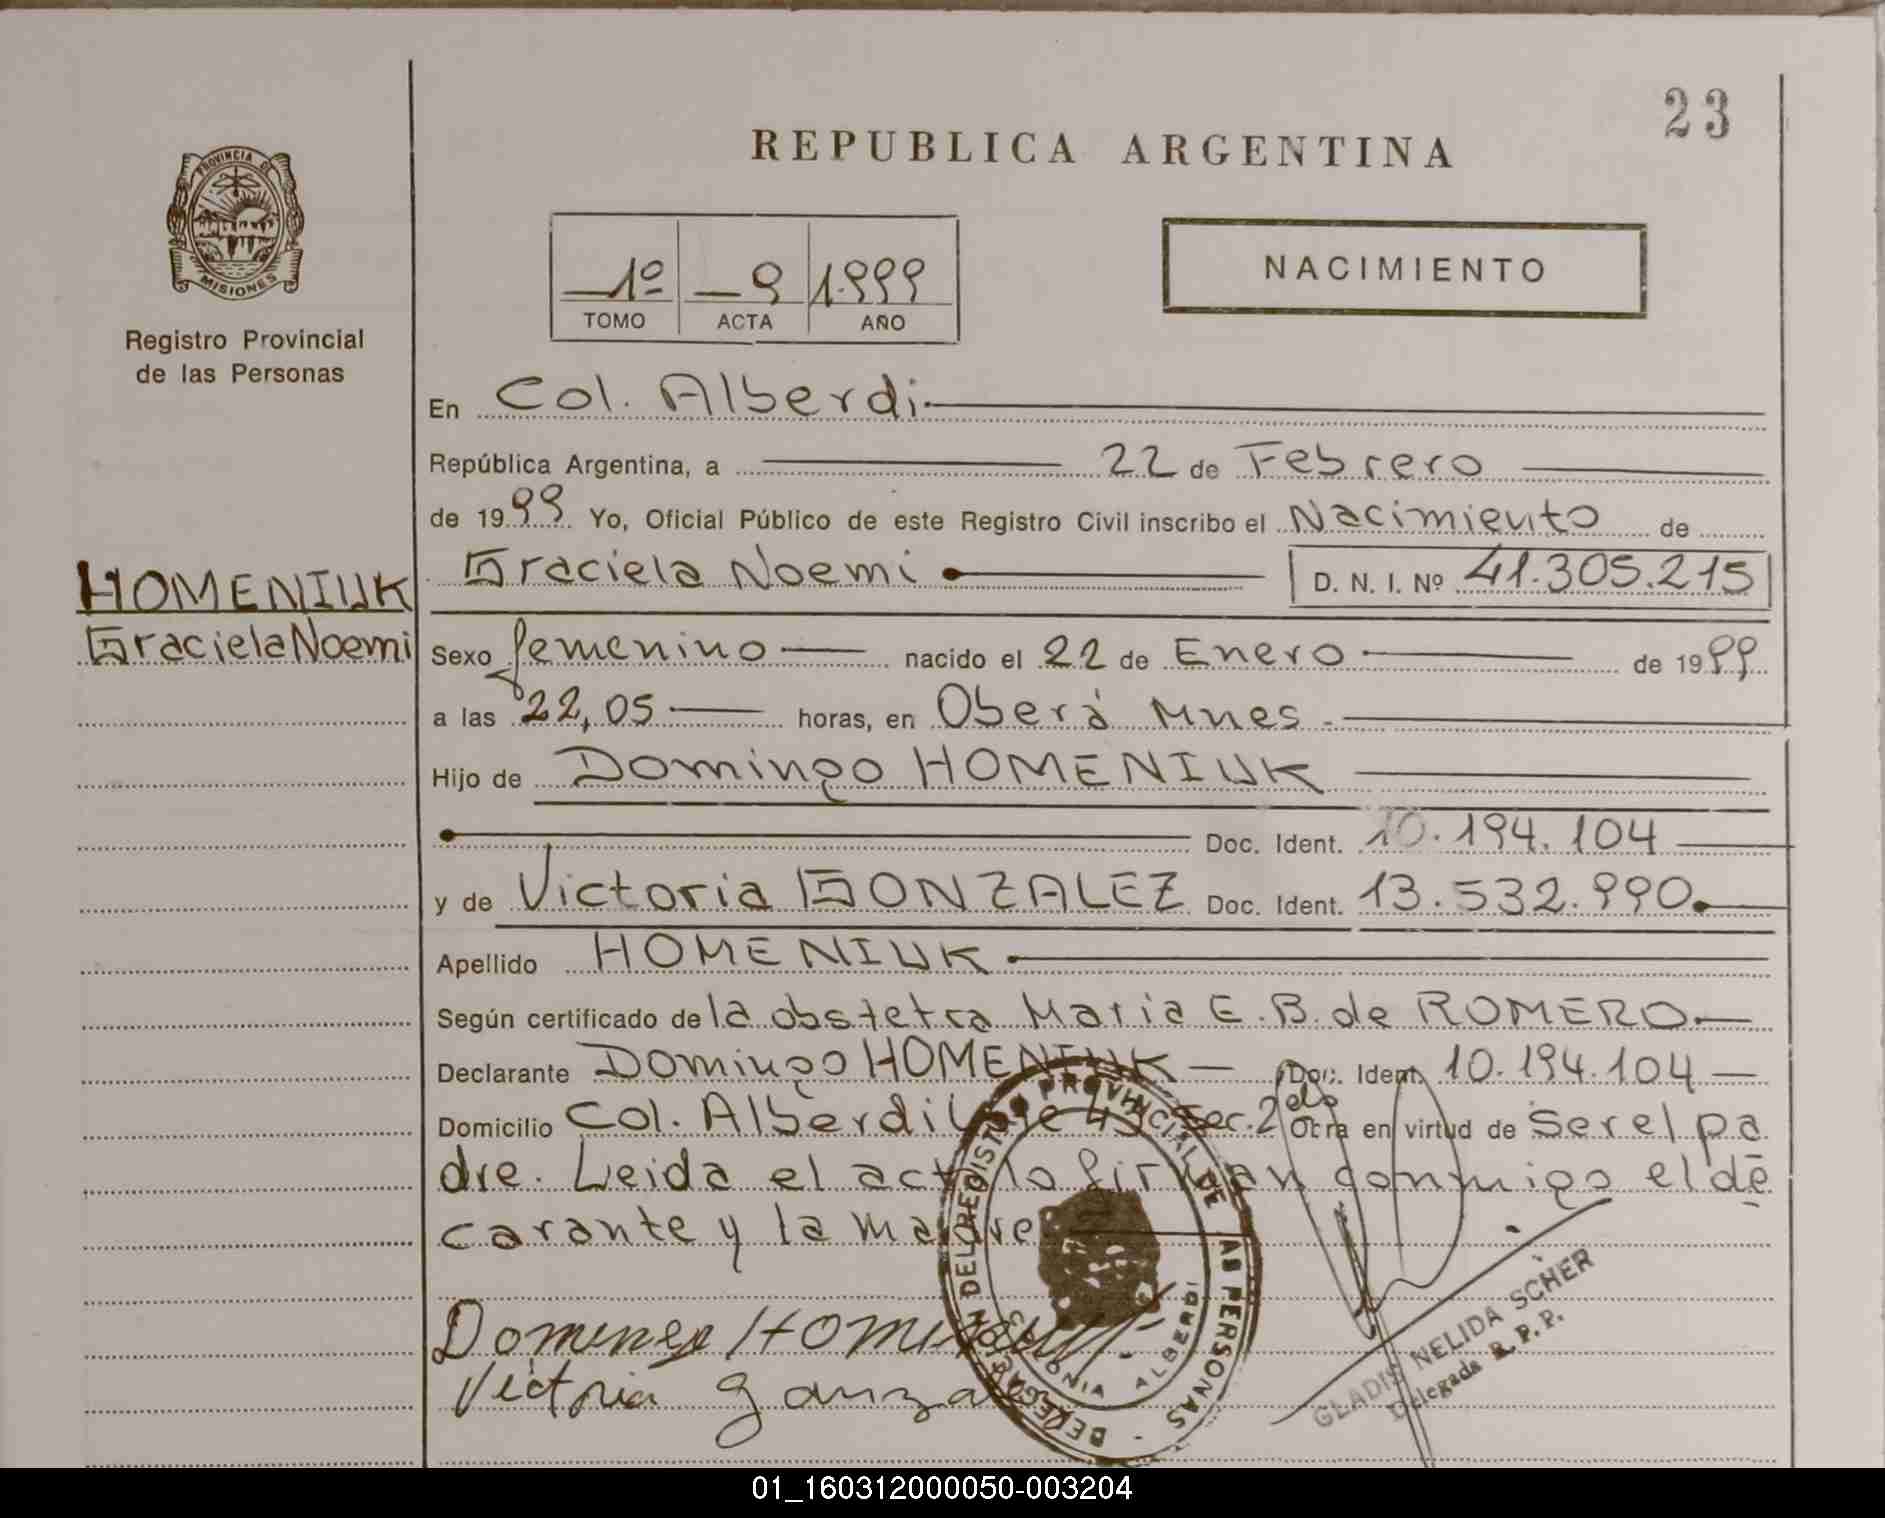 23
REPUBLICA ARGENTINA
PROVINCIA DE
MISIONES
Registro Provincial
de las Personas
1º 9 1.999
TOMO ACTA AÑO
NACIMIENTO
En Col. Alberdi.
República Argentina, a 22 de Febrero
de 1999 Yo, Oficial Público de este Registro Civil inscribo el Nacimiento de
HOMENIUK
Graciela Noemi
Graciela Noemi D. N. I. Nº 41.305.215
Sexo femenino nacido el 22 de Enero de 1999
a las 22,05 horas, en Oberá Mnes.
Hijo de Domingo HOMENIUK
Doc. Ident. 10.194.104
y de Victoria GONZALEZ Doc. Ident. 13.532.990.
Apellido HOMENIUK
Según certificado de la obstetra Maria E. B. de ROMERO.
Declarante Domingo HOMENIUK Doc. Ident. 10.194.104
Domicilio Col. Alberdi Lote Sec. 2 Otra en virtud de ser el pa
dre. Leida el acta lo firman conmigo el de
carante y la madre
DELEGACION DEL REGISTRO PROVINCIAL DE LAS PERSONAS
COLONIA ALBERDI
Victoria
GLADIS NELIDA SCHER
Delegada R. P. P.
01_160312000050-003204